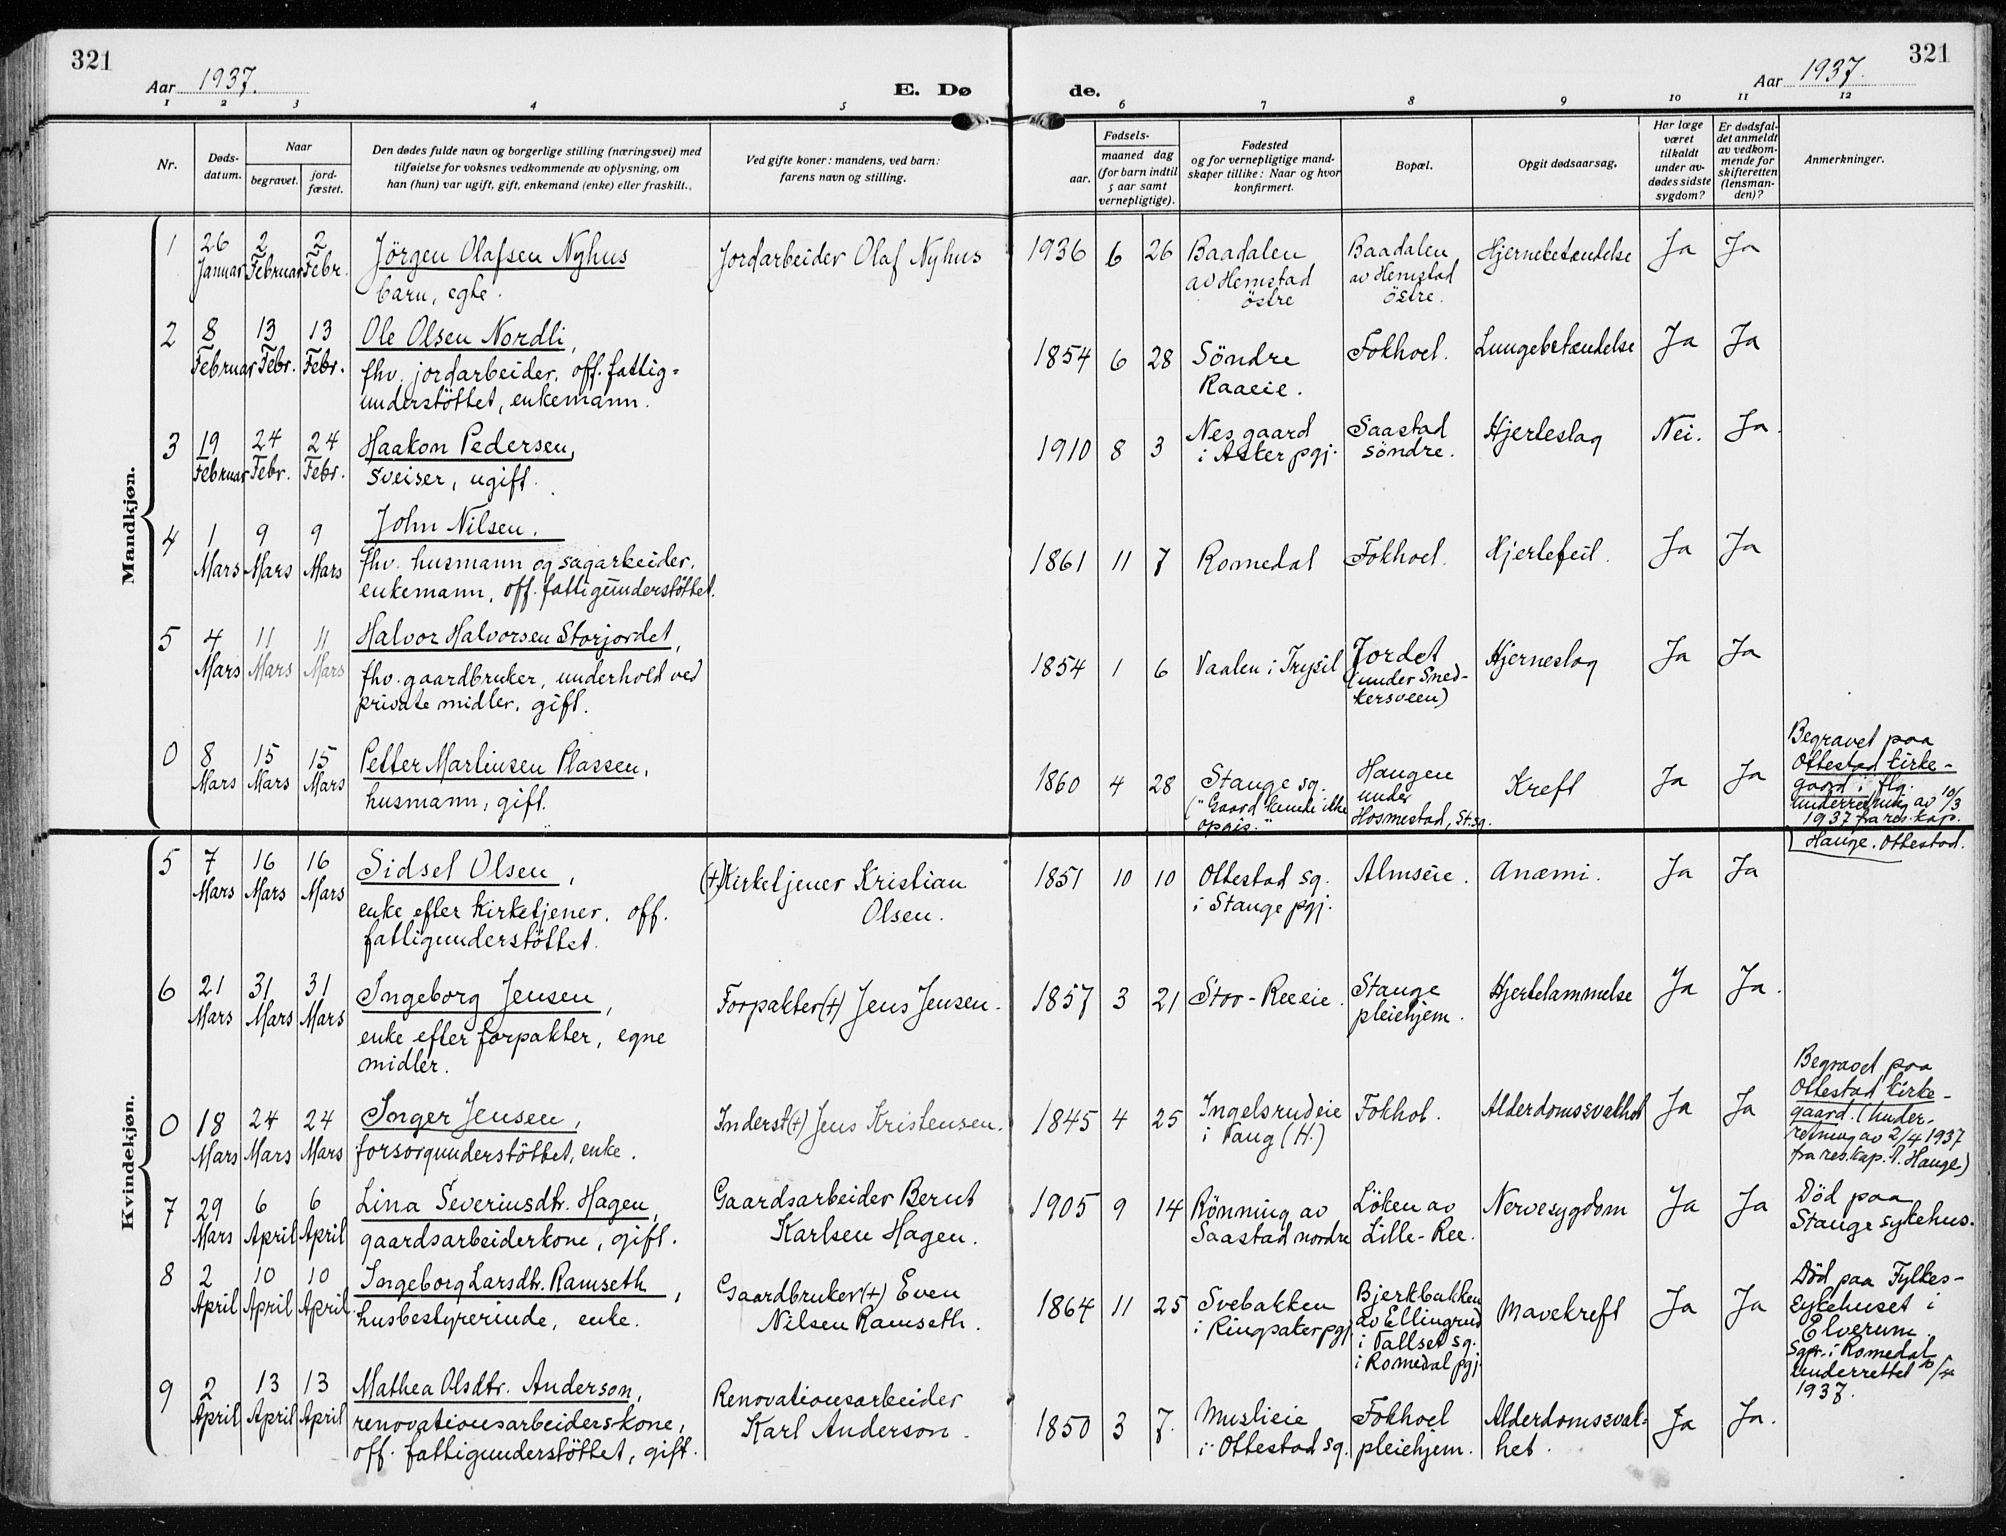 321
Aar 1937.
E. Dø
de.
Aar 1937.
321
1 2 3 4 5 6 7 8 9 10 11 12
Nr.
Døds-
datum.
Naar
begravet.
jord-
fæstet.
Den dødes fulde navn og borgerlige stilling (næringsvei) med
tilføielse for voksnes vedkommende av oplysning, om
han (hun) var ugift, gift, enkemand (enke) eller fraskilt.
Ved gifte koner: mandens, ved barn:
farens navn og stilling.
Fødsels-
aar.
maaned dag
(for barn indtil
5 aar samt
vernepligtige).
Fødested
og for vernepligtige mand-
skaper tillike: Naar og hvor
konfirmert.
Bopæl.
Opgit dødsaarsag.
Har læge
været
tilkaldt
under av-
dødes sidste
sygdom?
Er dødsfal-
det anmeldt
av vedkom-
mende for
skifteretten
(lensman-
den)?
Anmerkninger.
Mandkjøn.
1
26
Januar
2
Februar
2
Febr.
Jörgen Olafsen Nyhus
barn, egte.
Jordarbeider Olaf Nyhus
1936 6 26
Baadalen
av Hemstad
östre
Baadalen
av Hemstad
östre.
Hjernebetændelse
Ja
Ja
2
8
Februar
13
Febr.
13
Febr.
Ole Olsen Nordli,
fhv. jordarbeider, off. fattig-
understöttet, enkemann.
1854 6 28
Söndre
Raaeie.
Fokhoel.
Lungebetændelse
Ja
Ja
3
19
Februar
24
Febr.
24
Febr.
Haakon Pedersen,
sveiser, ugift.
1910 8 3
Nes gaard
i Asker pgj.
Saastad
söndre.
Hjerteslag
Nei.
Ja.
4
1
Mars
9
Mars
9
Mars
John Nilsen.
fhv. husmann og sagarbeider.
enkemann, off. fattigunderstöttet.
1861 11 7
Romedal
Fokhoel.
Hjertefeil.
Ja
Ja
5
4
Mars
11
Mars
11
Mars
Halvor Halvorsen Storjordet,
fhv. gaardbruker, underhold ved
private midler, gift.
1854 1 6
Vaalen i Trysil
Jordet
(under Smed-
kersveen)
Hjerneslag
Ja
Ja
0
8
Mars
15
Mars
15
Mars
Petter Martinsen Plassen,
husmann, gift.
1860 4 28
Stange sg.
("Gaard kunde ikke
opgis."
Haugen
under
Hosmestad, St. sg.
Kreft
Ja
Ja
Begravet paa
Ottestad kirke-
gaard i flg.
underretning av 10/3
1937 fra res. kap.
Hauge. Ottestad.
Kvindekjøn.
5
7
Mars
16
Mars
16
Mars
Sidsel Olsen,
enke efter kirketjener. off.
fattigunderstöttet.
(+) Kirketjener Kristian
Olsen.
1851 10 10
Ottestad sg.
i Stange pgj.
Almseie.
Anæmi.
Ja
Ja
6
21
Mars
31
Mars
31
Mars
Ingeborg Jensen,
enke efter forpakter, egne
midler.
Forpakter (+) Jens Jensen.
1857 3 21
Stor-Reeeie.
Stange
pleiehjem.
Hjertelammelse
Ja
Ja.
0
18
Mars
24
Mars
24
Mars
Inger Jensen,
forsorgunderstöttet, enke.
Inderst (+) Jens Kristensen.
1845 4 25
Ingelsrudeie
i Vang (H.)
Fokhol.
Alderdomssvakhet
Ja
Ja
Begravet paa
Ottestad kirke-
gaard. (Under-
retning av 2/4 1937
fra res. kap. Hauge)
7
29
Mars
6
April
6
April
Lina Severinsdtr. Hagen,
gaardsarbeiderkone, gift.
Gaardsarbeider Bernt
Karlsen Hagen.
1905 9 14
Rönning av
Saastad nordre
Löken av
Lille-Ree.
Nervesygdom
Ja
Ja
Död paa
Stange sykehus.
8
2
April
10
April
10
April.
Ingeborg Larsdtr. Ramseth,
husbestyrerinde, enke.
Gaardbruker (+) Even
Nilsen Ramseth.
1864 11 25
Svebakken
i Ringsaker pgj.
Bjerkbakken
av Ellingrud
i Vallset sg.
i Romedal pgj.
Mavekreft
Ja
Ja
Död paa Fylkes-
sykehuset i
Elverum.
Sgpr. i Romedal
underrettet 10/4
1937.
9
2
April
13
April
13
April
Mathea Olsdtr. Anderson,
renovationsarbeiders-kone,
off. fattigunderstöttet, gift.
Renovationsarbeider
Karl Anderson.
1850 3 7.
Muslieie
i Ottestad sg.
Fokhoel
pleiehjem.
Alderdomssvak-
het.
Ja
Ja.